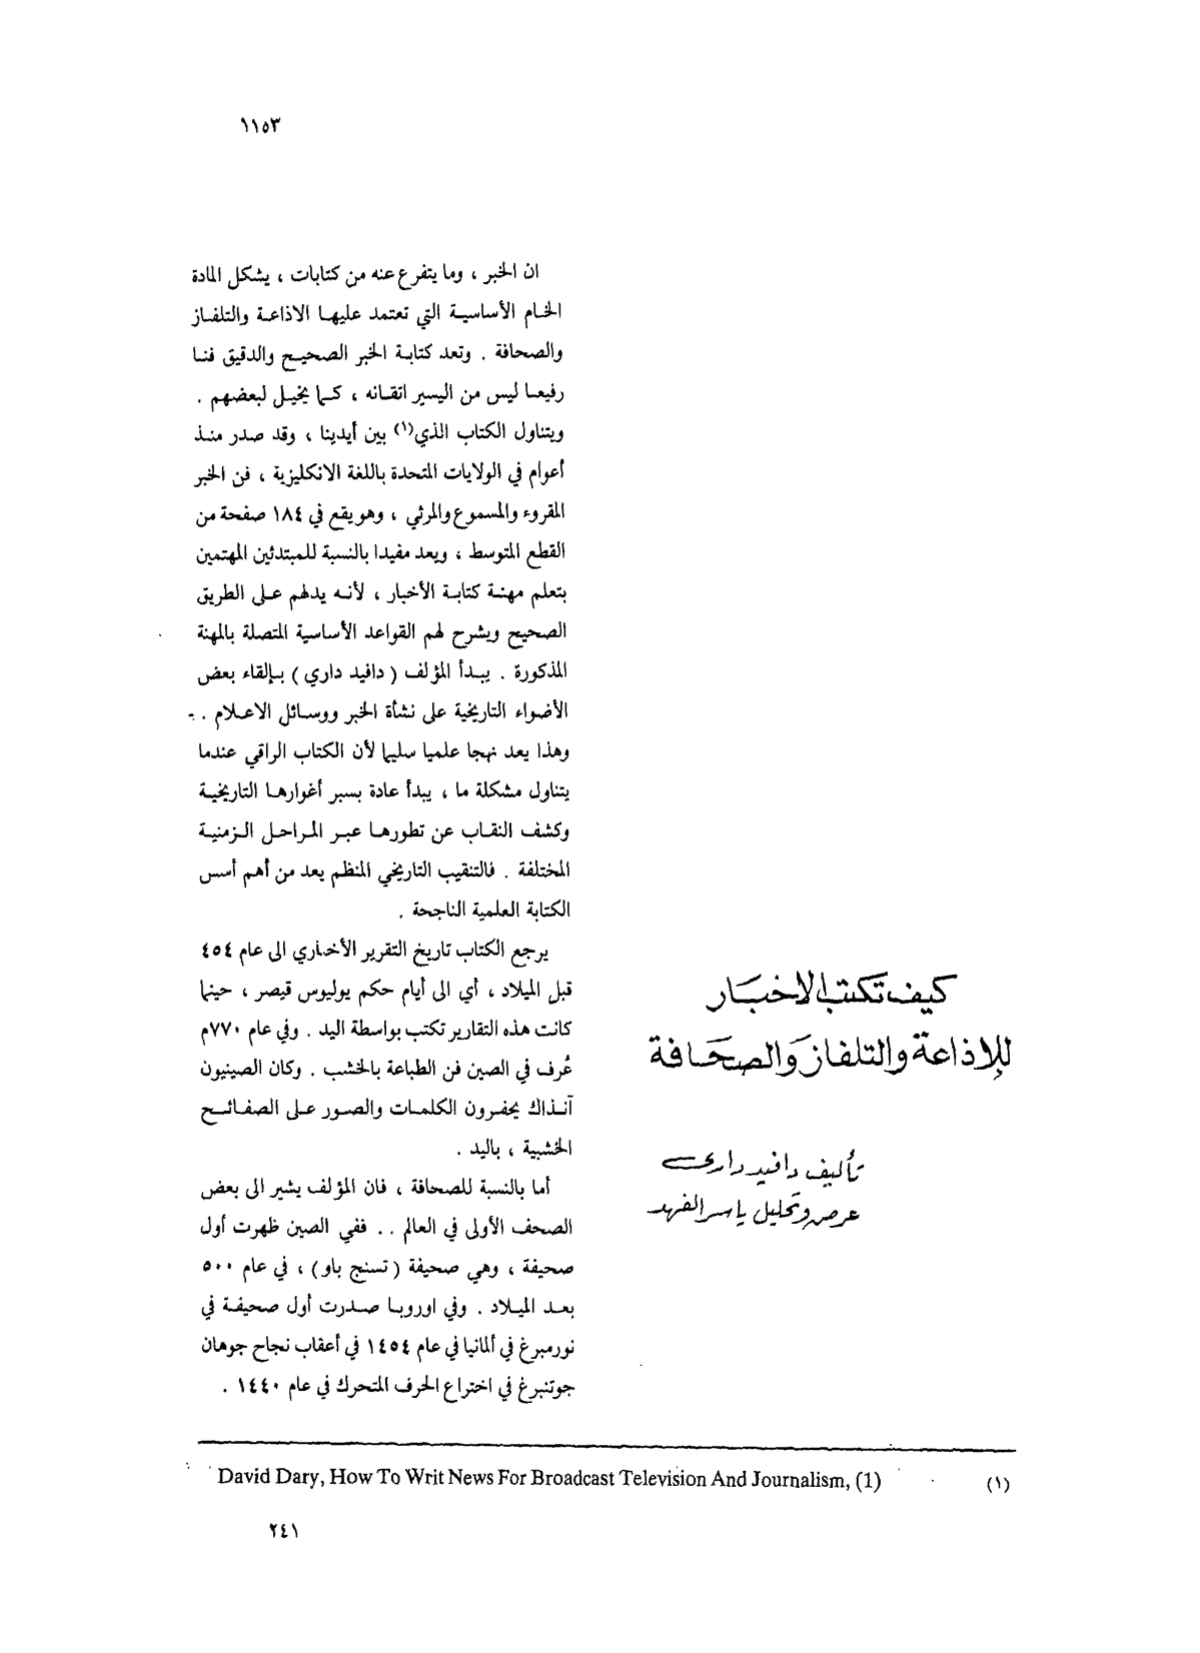 ١١٥٣
كيف تكتب الاخبار
للإذاعة والتلفاز والصحافة
تأليف دافيد داري
عرض وتحليل ياسر الفهد
ان الخبر ، وما يتفرع عنه من كتابات ، يشكل المادة
الخام الأساسية التي تعتمد عليها الاذاعة والتلفاز
والصحافة . وتعد كتابة الخبر الصحيح والدقيق فنا
رفيعا ليس من اليسير اتقانه ، كما يخيل لبعضهم .
ويتناول الكتاب الذي(١) بين أيدينا ، وقد صدر منذ
أعوام في الولايات المتحدة باللغة الانكليزية ، فن الخبر
المقروء والمسموع والمرئي ، وهو يقع في ١٨٤ صفحة من
القطع المتوسط ، ويعد مفيدا بالنسبة للمبتدئين المهتمين
بتعلم مهنة كتابة الأخبار ، لأنه يدلهم على الطريق
الصحيح ويشرح لهم القواعد الأساسية المتصلة بالمهنة
المذكورة . يبدأ المؤلف ( دافيد داري ) بإلقاء بعض
الأضواء التاريخية على نشأة الخبر ووسائل الاعلام .
وهذا يعد نهجا علميا سليما لأن الكتاب الراقي عندما
يتناول مشكلة ما ، يبدأ عادة بسبر أغوارها التاريخية
وكشف النقاب عن تطورها عبر المراحل الزمنية
المختلفة . فالتنقيب التاريخي المنظم يعد من أهم أسس
الكتابة العلمية الناجحة .
يرجع الكتاب تاريخ التقرير الأخباري الى عام ٤٥٤
قبل الميلاد ، أي الى أيام حكم يوليوس قيصر ، حينما
كانت هذه التقارير تكتب بواسطة اليد . وفي عام ٧٧٠م
عُرف في الصين فن الطباعة بالخشب . وكان الصينيون
آنذاك يحفرون الكلمات والصور على الصفائح
الخشبية ، باليد .
أما بالنسبة للصحافة ، فان المؤلف يشير الى بعض
الصحف الأولى في العالم . . ففي الصين ظهرت أول
صحيفة ، وهي صحيفة ( تسنج باو ) ، في عام ٥٠٠
بعد الميلاد . وفي اوروبا صدرت أول صحيفة في
نورمبرغ في ألمانيا في عام ١٤٥٤ في أعقاب نجاح جوهان
جوتنبرغ في اختراع الحرف المتحرك في عام ١٤٤٠ .
(١) David Dary, How To Writ News For Broadcast Television And Journalism, (1)
٢٤١